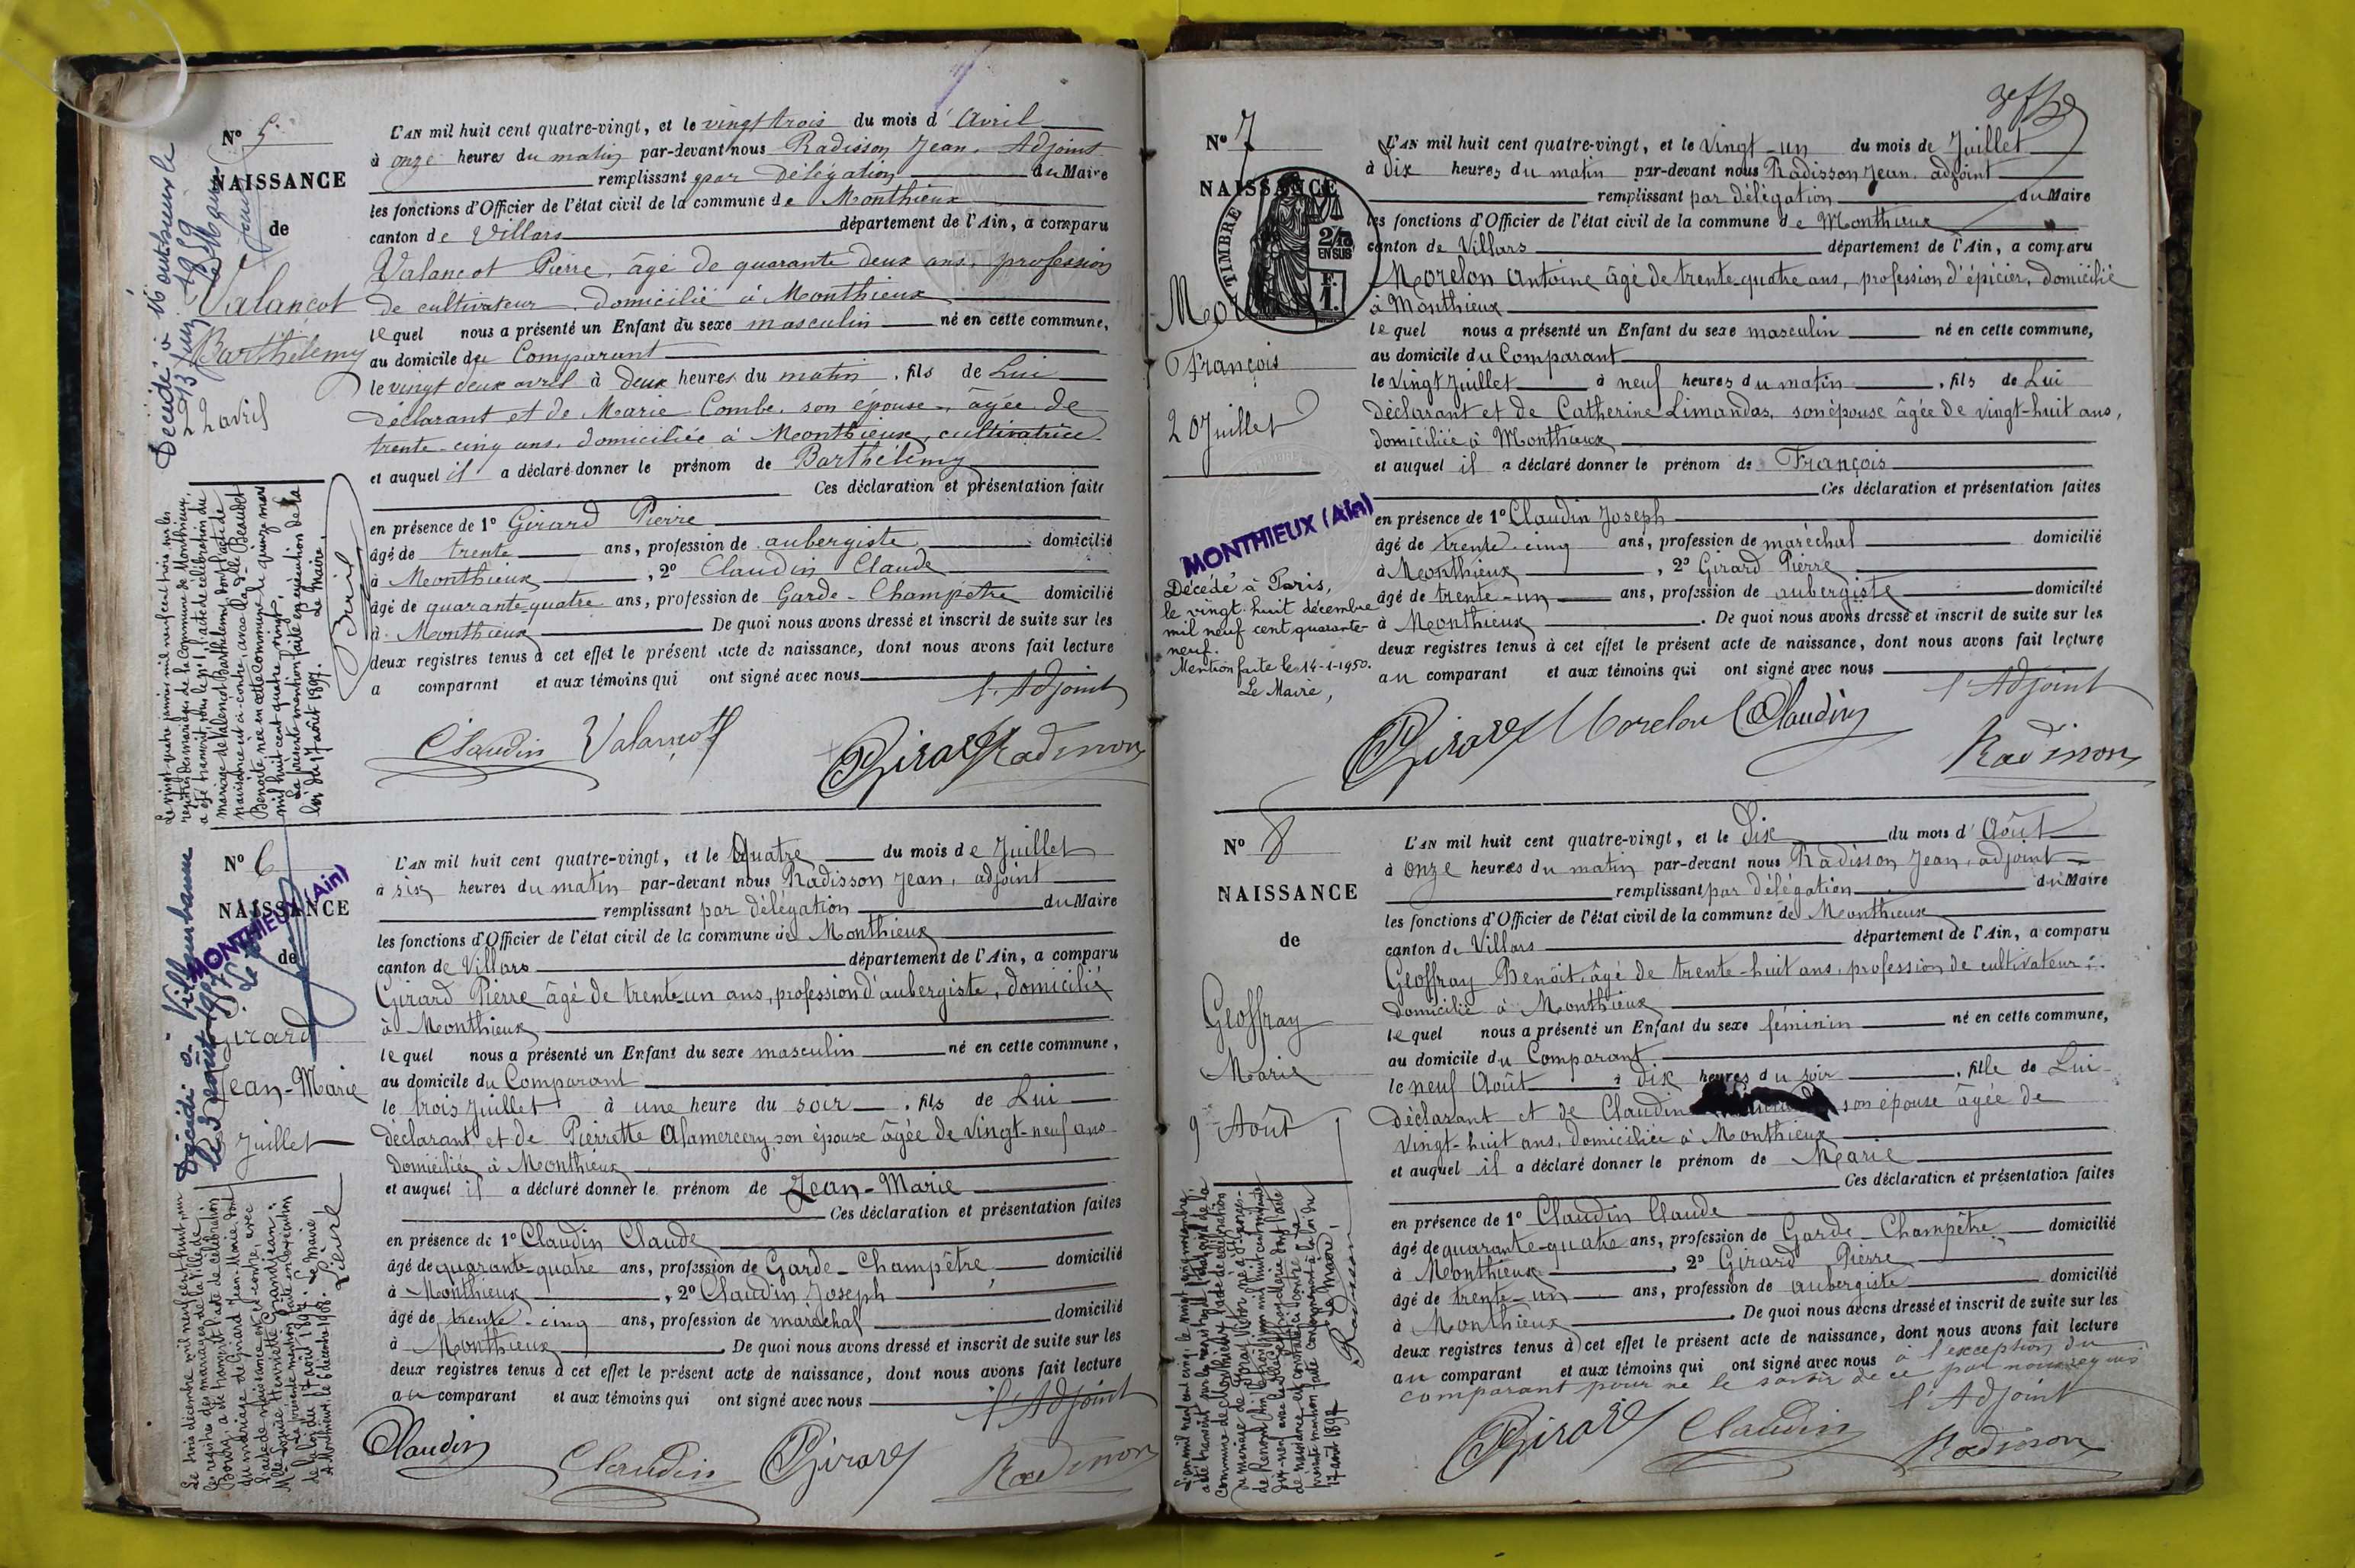 N° 5
NAISSANCE
de
Valancot
Barthélemy
22 avril
L'AN mil huit cent quatre-vingt, et le vingt trois du mois d'Avril
à onze heures du matin par-devant nous Radisson Jean, Adjoint
remplissant par délégation du Maire
les fonctions d'Officier de l'état civil de la commune de Monthieux
canton de Villars département de l'Ain, a comparu
Valancot Pierre, âgé de quarante deux ans, profession
de cultivateur domicilié à Monthieux
lequel nous a présenté un Enfant du sexe masculin né en cette commune,
au domicile du Comparant
le vingt deux avril à deux heures du matin, fils de Lui
déclarant et de Marie Combe, son épouse, âgée de
trente-cinq ans, domiciliée à Monthieux, cultivatrice.
et auquel il a déclaré donner le prénom de Barthélemy
Ces déclaration et présentation faite
en présence de 1° Girard Pierre
âgé de trente ans, profession de aubergiste domicilié
à Monthieux, 2° Claudin Claude
âgé de quarante quatre ans, profession de Garde-Champêtre domicilié
à Monthieux De quoi nous avons dressé et inscrit de suite sur les
deux registres tenus à cet effet le présent acte de naissance, dont nous avons fait lecture
a comparant et aux témoins qui ont signé avec nous
l'Adjoint
Claudin Valancot Girard Radisson
Le vingt-quatre janvier mil neuf cent trois sur les
registres des mariages de la Commune de Monthieux,
a été transcrit sous le n° 1, l'acte de célébration du
mariage de Valencot Barthélemy dont l'acte de
naissance est ci-contre, avec la dlle Beaudet
Benoite née en cette commune le quinze mars
mil huit cent quatre vingt.
La présente mention faite en exécution de la
loi du 17 août 1897. Le Maire,
N° 6
NAISSANCE
de
MONTHIEUX (Ain)
Girard
Jean-Marie
Juillet
L'AN mil huit cent quatre-vingt, et le Quatre du mois de Juillet
à six heures du matin par-devant nous Radisson Jean, adjoint
remplissant par délégation du Maire
les fonctions d'Officier de l'état civil de la commune de Monthieux
canton de Villars département de l'Ain, a comparu
Girard Pierre âgé de trente-un ans, profession d'aubergiste, domicilié
à Monthieux
lequel nous a présenté un Enfant du sexe masculin né en cette commune,
au domicile du Comparant
le trois Juillet à une heure du soir, fils de Lui
déclarant et de Pierrette Alamercery son épouse âgée de vingt-neuf ans
domiciliée à Monthieux
et auquel il a déclaré donner le prénom de Jean-Marie
Ces déclaration et présentation faites
en présence de 1° Claudin Claude
âgé de quarante-quatre ans, profession de Garde-Champêtre domicilié
à Monthieux, 2° Claudin Joseph
âgé de trente-cinq ans, profession de maréchal domicilié
à Monthieux De quoi nous avons dressé et inscrit de suite sur les
deux registres tenus à cet effet le présent acte de naissance, dont nous avons fait lecture
au comparant et aux témoins qui ont signé avec nous
l'Adjoint
Claudin Claudin Girard Radisson
Le trois décembre mil neuf cent huit, sur
les registres des mariages de la Ville de
Bourg, a été transcrit l'acte de célébration
du mariage de Girard Jean-Marie dont
l'acte de naissance est ci-contre, avec
Mlle Louise Henriette Grandjean.
La présente mention faite en exécution
de la loi du 17 août 1897. Le Maire
A Monthieux, le 6 décembre 1908.
N° 7
NAISSANCE
TIMBRE
2/10
EN SUS
F.
1.
François
20 Juillet
MONTHIEUX (Ain)
Décédé à Paris,
le vingt-huit décembre
mil neuf cent quarante-
neuf.
Mention faite le 14-1-1950.
Le Maire,
L'AN mil huit cent quatre-vingt, et le Vingt-un du mois de Juillet
à Dix heures du matin par-devant nous Radisson Jean adjoint
remplissant par délégation du Maire
les fonctions d'Officier de l'état civil de la commune de Monthieux
canton de Villars département de l'Ain, a comparu
Morelon Antoine âgé de trente quatre ans, profession d'épicier, domicilié
à Monthieux
lequel nous a présenté un Enfant du sexe masculin né en cette commune,
au domicile du Comparant
le vingt Juillet à neuf heures du matin, fils de Lui
déclarant et de Catherine Limandas, son épouse âgée de vingt-huit ans,
domiciliée à Monthieux
et auquel il a déclaré donner le prénom de François
Ces déclaration et présentation faites
en présence de 1° Claudin Joseph
âgé de trente-cinq ans, profession de maréchal domicilié
à Monthieux, 2° Girard Pierre
âgé de trente-un ans, profession de aubergiste domicilié
à Monthieux. De quoi nous avons dressé et inscrit de suite sur les
deux registres tenus à cet effet le présent acte de naissance, dont nous avons fait lecture
au comparant et aux témoins qui ont signé avec nous
l'Adjoint
Girard Morelon Claudin Radisson
N° 8
NAISSANCE
de
Geoffray
Marie
9 Août
L'AN mil huit cent quatre-vingt, et le Dix du mois d'Août
à onze heures du matin par-devant nous Radisson Jean, adjoint
remplissant par délégation du Maire
les fonctions d'Officier de l'état civil de la commune de Monthieux
canton de Villars département de l'Ain, a comparu
Geoffray Benoit, âgé de trente-huit ans, profession de cultivateur
domicilié à Monthieux
lequel nous a présenté un Enfant du sexe féminin né en cette commune,
au domicile du Comparant
le neuf Août à dix heures du soir, fille de Lui
déclarant et de Claudin son épouse âgée de
vingt-huit ans, domiciliée à Monthieux
et auquel il a déclaré donner le prénom de Marie
Ces déclaration et présentation faites
en présence de 1° Claudin Claude
âgé de quarante-quatre ans, profession de Garde-Champêtre domicilié
à Monthieux, 2° Girard Pierre
âgé de trente-un ans, profession de aubergiste domicilié
à Monthieux. De quoi nous avons dressé et inscrit de suite sur les
deux registres tenus à cet effet le présent acte de naissance, dont nous avons fait lecture
au comparant et aux témoins qui ont signé avec nous à l'exception du
comparant pour ne le savoir de ce par nous requis
l'Adjoint
Girard Claudin Radisson